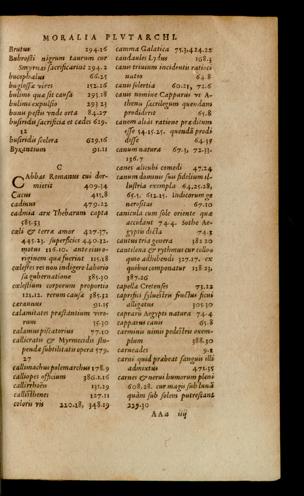 MORALIA PLUTARCHI.
Brutus 294.16
Bubrosti nigrum taurum cur
Smyrnæi sacrificarint 294.2
bucephalus 66.25
buglossa vires 152.16
bulimo qua sit causa 293.18
bulimi expulsio 293.23
bunu pestis unde orta 84.27
busiridis sacrificia et cædes 629.
12
busiridis scelera 629.16
Byzantium 91.11
C
CAbbas Romanus cui dor-
mierit 409.34
Cacus 411.8
cadmus 479.12
cadmia arx Thebarum capta
585.53
cæli & terræ amor 427.37.
445.23. superficies 440.32.
motus 116.10. ante eius o-
riginem quæ fuerint 115.18
cælestes res non indigere laborio
sa gubernatione 385.30
cælestium corporum proportio
121.12. rerum causa 385.52
caranus 91.15
calamitates præstantium viro-
rum 15.30
calamus pistatorius 77.10
callicratis & Myrmecidis stu-
penda subtilitatis opera 579.
27
callimachus polemarchus 178.9
calliopes officium 386.1.16
callirrhoën 131.19
callisthenes 127.11
coloris vis 220.28, 348.19
camma Galatica 75.3.424.22
candaulis Lydus 198.3
canis triuium incidentis ratioci
natio 64.8
canis solertia 60.21, 72.6
canis nomine Capparus vt A-
thenis sacrilegum quendam
prodiderit 65.8
canem alias ratione præditum
esse 54.15.25. quendā prodi
disse 64.35
canum natura 67.3, 72.33.
136.7
canes alicubi comedi 47.24
canum dominis suis fidelium il-
lustria exempla 64.25.28,
65.1. 612.15. indicorum ge
nerositas 67.10
canicula cum sole oriente quæ
accidant 74.4. Sothe Ae-
gyptiis dicta 74.3
cantus tria genera 182.20
cantilena & rythmus cur collo
quio adhibendi 227.17. ex
quibus componatur 128.23.
387.26
capella Cretenses 73.12
caprifici sylvestris fructus ficui
alligatus 305.10
capraris Aegypti natura 74.4
capparus canis 65.8
carminis nimis pedestris exem-
plum 388.30
carneades 9.2
carni quid præbeat sanguis illi
admixtus 471.35
carnes & nerui humorum pleni
608.28. cur magis sub lunâ
quàm sub solem putrescant
229.30
AAa iiij